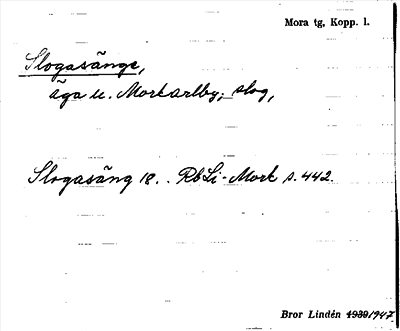 Mora tg, Kopp. l.
Slogasänge,
äga u. Morkarlby; slog,
Slogasäng 18. . RbLi-Mork s. 442.
Bror Lindén 1930/1947